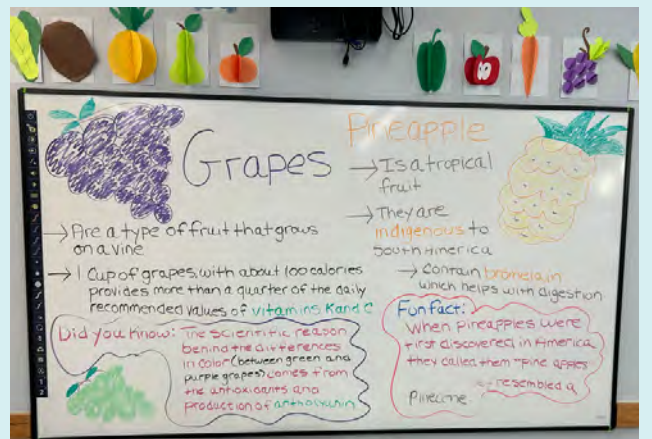 Grapes
→ Are a type of fruit that grows
on a vine
→ 1 Cup of grapes, with about 100 calories
provides more than a quarter of the daily
recommended values of vitamins K and C
Did you know: The scientific reason
behind the differences
in color (between green and
purple grapes) comes from
the antioxidants and
production of anthocyanin
Pineapple
→ Is a tropical
fruit
→ They are
indigenous to
South America
→ Contain bromelain
which helps with digestion
Fun fact:
When pineapples were
first discovered in America
they called them "pine apples"
resembled a
Pinecone